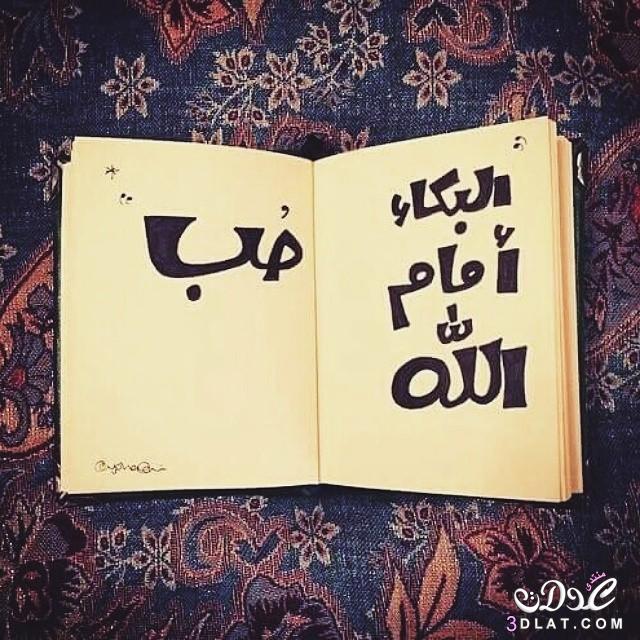 البكاء
أمام
الله
حُب
منتدى
عدلات
3DLAT.COM